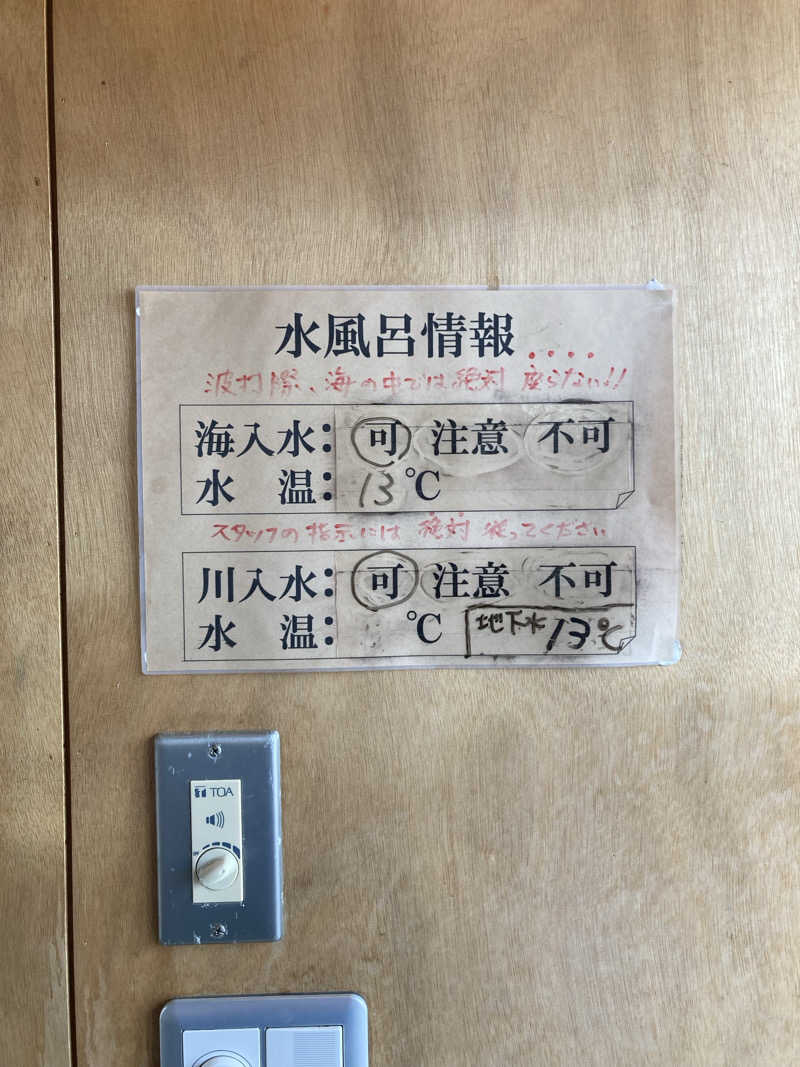 水風呂情報
波打際、海の中では絶対 座らない!!
海入水: 可 注意 不可
水 温: 13 ℃
スタッフの指示には 絶対 従ってください
川入水: 可 注意 不可
水 温: ℃ 地下水 13℃
TOA